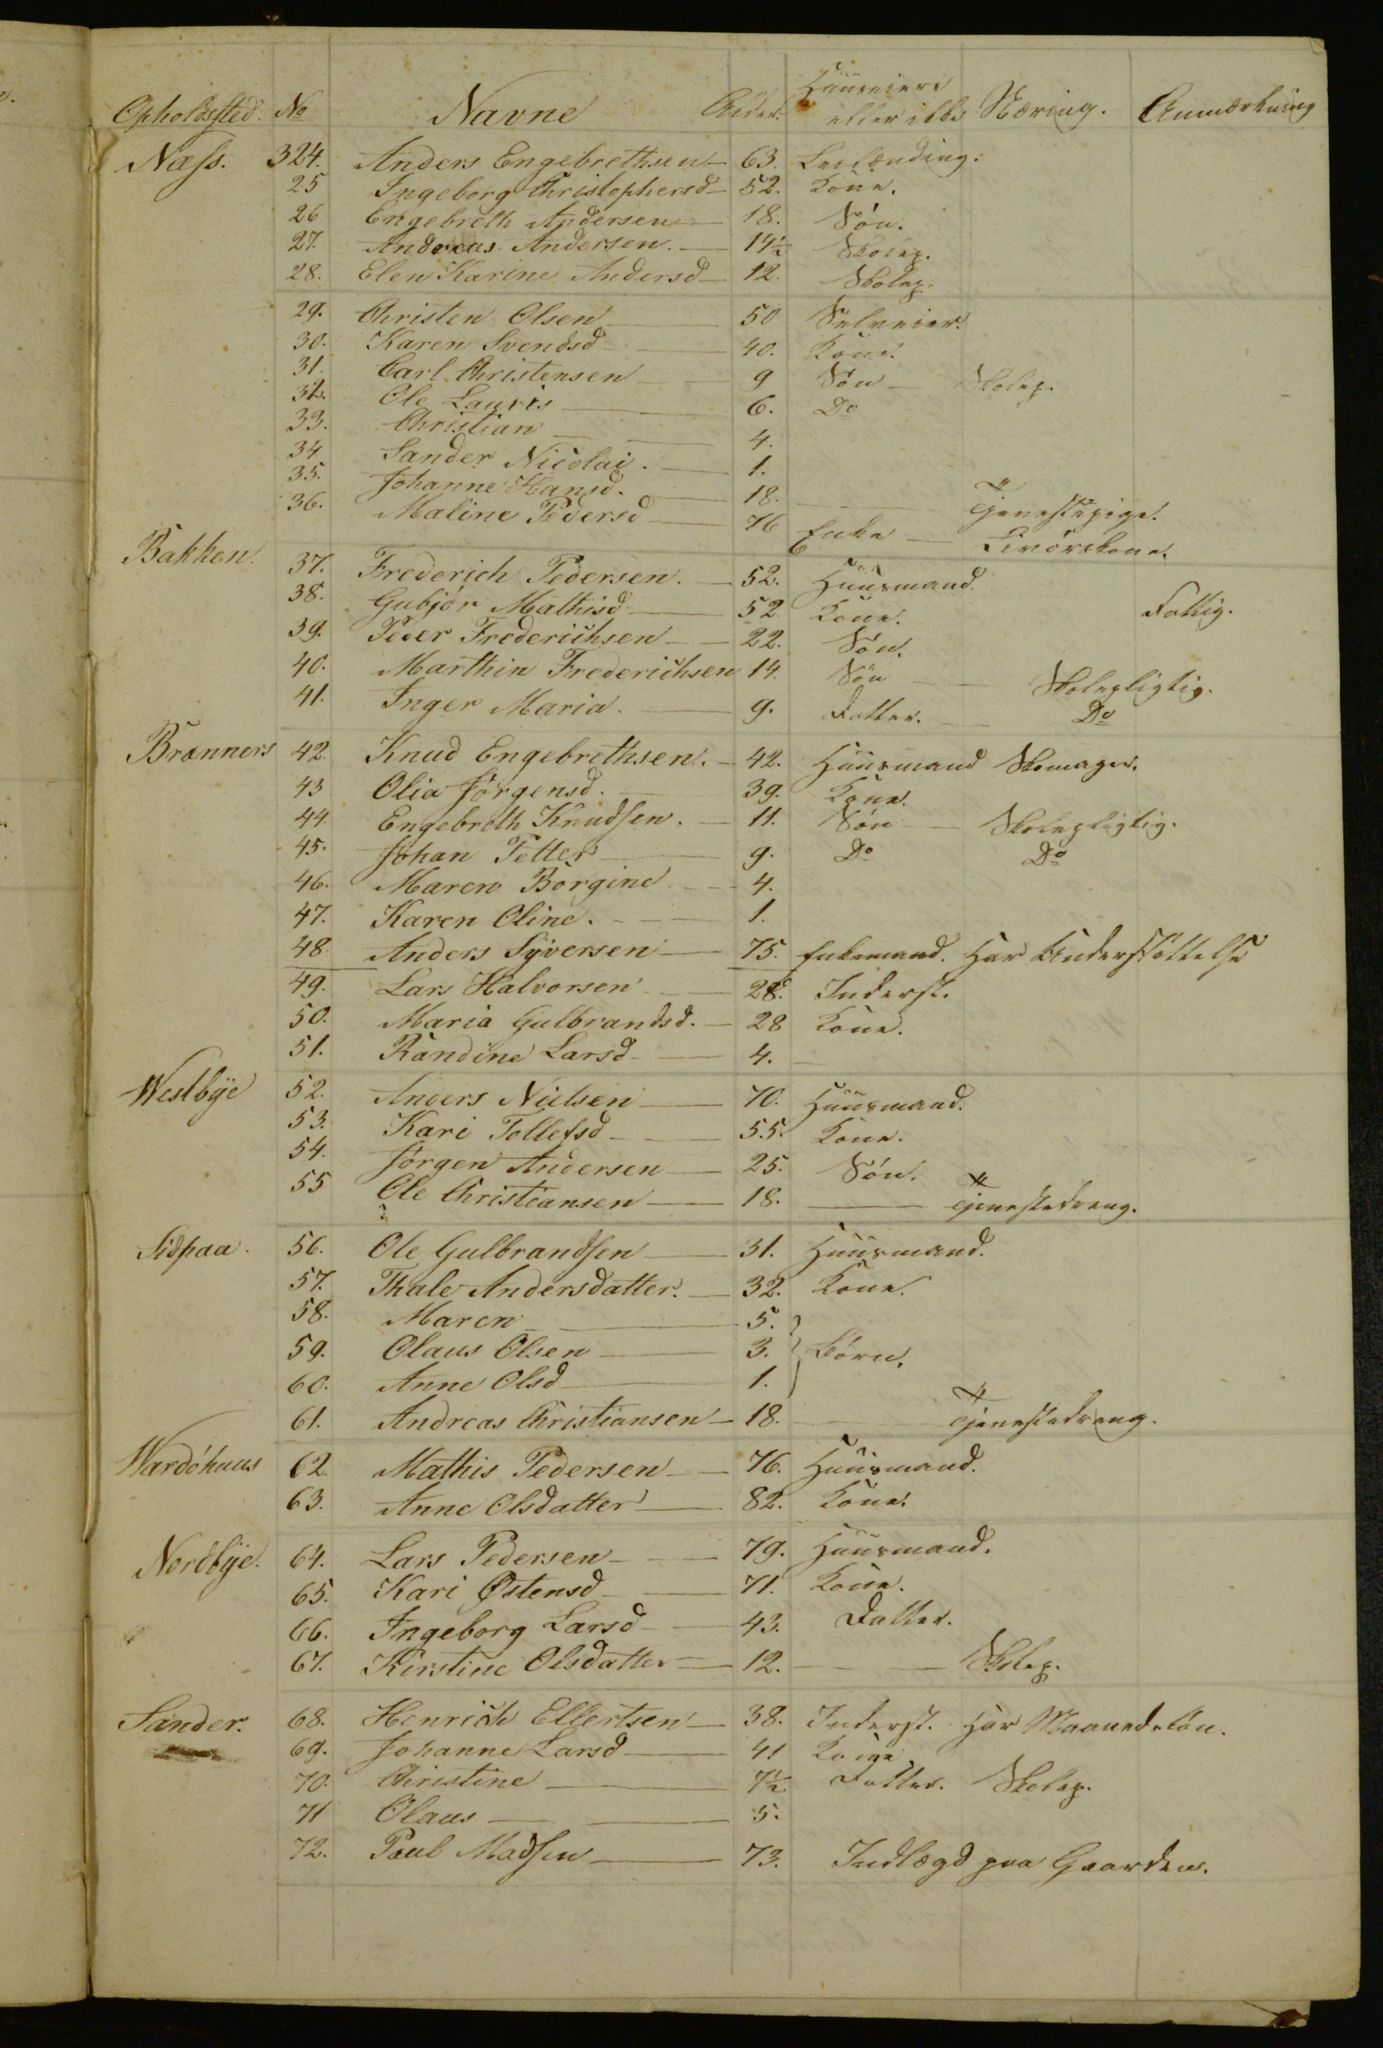 Opholdssted. No Navne Alder. Huuseiere eller ikke Næring. Anmærkning
Næss. 324. Anders Engebrethsen 63. Leilænding.
25 Ingeborg Christophersd 52. Kone.
26 Engebreth Andersen 18. Søn.
27. Andreas Andersen. 14½ Skolep.
28. Elen Karine Andersd 12. Skolep.
29. Christen Olsen 50 Selveier.
30. Karen Svendsd 40. Kone.
31. Carl Christensen 9 Søn Skolep.
32. Ole Lauris 6. Do
33. Christian 4.
34 Sander Nicolai. 1.
35. Johanne Hansd. 18. Tjenestepige.
36. Maline Pedersd 76 Enke Livørskone.
Bakken. 37. Frederich Pedersen. 52. Huusmand.
38. Gubjør Mathisd 52 Kone. Fattig.
39. Peder Frederichsen 22. Søn.
40. Marthin Frederichsen 14. Søn Skolepligtig.
41. Inger Maria. 9. Datter. Do
Brænners 42. Knud Engebrethsen. 42. Huusmand Skomager.
43 Olia Jörgensd. 39. Kone.
44 Engebreth Knudsen. 11. Søn Skolepligtig.
45. Johan Petter 9. Do Do
46. Maren Börgine 4.
47. Karen Oline. 1.
48. Anders Syversen 75. Enkemand. Har Understöttelse
49. Lars Halvorsen 28. Inderst.
50. Maria Gulbrandsd. 28 Kone.
51. Randine Larsd 4.
Westbye 52. Anders Nielsen 70. Huusmand.
53. Kari Tollefsd 55. Kone.
54. Jörgen Andersen 25. Søn.
55 Ole Christiansen 18. Tjenestedreng.
Lidpaa. 56. Ole Gulbrandsen 31. Huusmand.
57. Thale Andersdatter. 32. Kone.
58. Maren 5.
59. Olaus Olsen 3. Børn.
60. Anne Olsd 1.
61. Andreas Christiansen 18. Tjenestedreng.
Wardöhuus 62. Mathis Pedersen 76. Huusmand.
63. Anne Olsdatter 82. Kone.
Nordbye. 64. Lars Pedersen 79. Huusmand.
65. Kari Østensd 71. Kone.
66. Ingeborg Larsd 43. Datter.
67. Kirstine Olsdatter 12. Skolep.
Sander. 68. Henrich Ellertsen 38. Inderst. Har Maanedsløn.
69. Johanne Larsd 41 Kone
70. Christine 7½ Datter. Skolep.
71 Olaus 5.
72. Poul Madsen 73. Indlægd paa Gaarden.